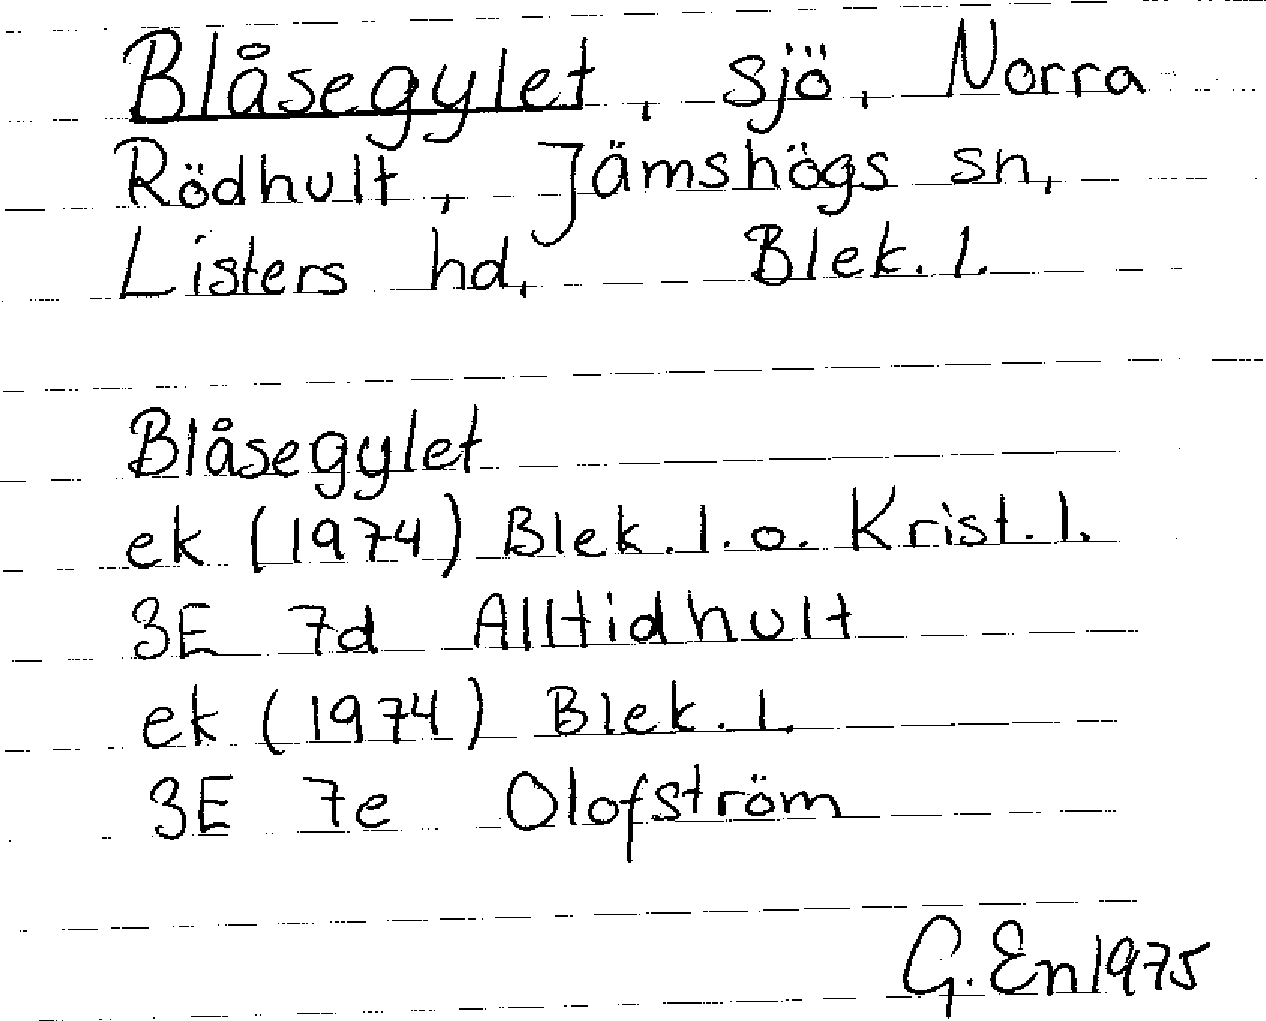 Blåsegylet, sjö, Norra
Rödhult, Jämshögs sn,
Listers hd, Blek. l.
Blåsegylet
ek (1974) Blek. l. o. Krist. l.
3E 7d Alltidhult
ek (1974) Blek. l.
3E 7e Olofström
G. En 1975